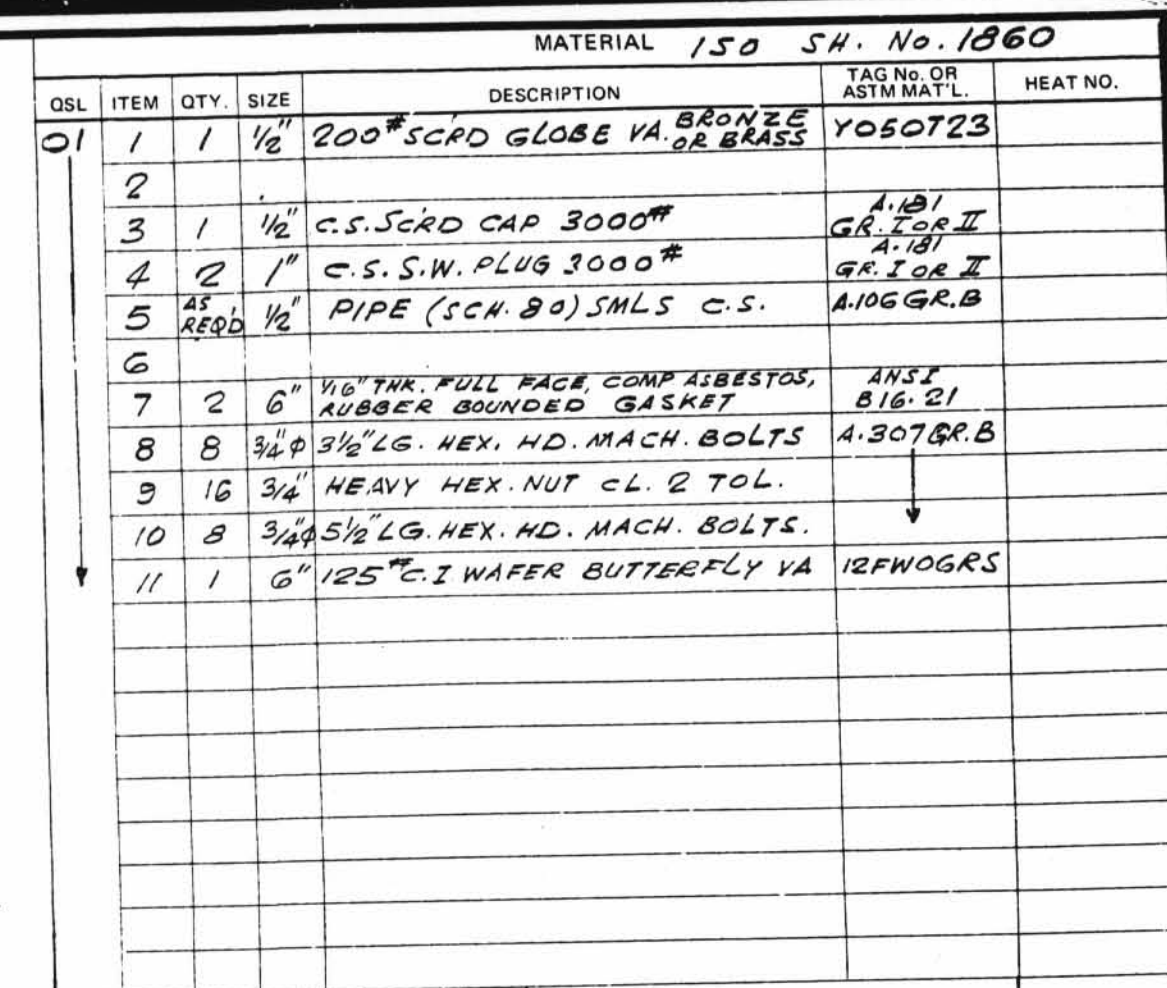 MATERIAL ISO SH. No. 1860
QSL ITEM QTY. SIZE DESCRIPTION TAG No. OR ASTM MAT'L. HEAT NO.
01 1 1 1/2" 200# SCR'D GLOBE VA. BRONZE OR BRASS Y050T23
2
3 1 1/2" C.S. SCR'D CAP 3000# A.181 GR. I OR II
4 2 1" C.S. S.W. PLUG 3000# A.181 GR. I OR II
5 AS REQ'D 1/2" PIPE (SCH. 80) SMLS C.S. A.106 GR.B
6
7 2 6" 1/16" THK. FULL FACE, COMP ASBESTOS, RUBBER BOUNDED GASKET ANSI B16.21
8 8 3/4"φ 3 1/2" LG. HEX. HD. MACH. BOLTS A.307 GR.B
9 16 3/4" HEAVY HEX. NUT CL. 2 TOL.
10 8 3/4"φ 5 1/2" LG. HEX. HD. MACH. BOLTS.
11 1 6" 125# C.I WAFER BUTTERFLY VA 12FWOGRS